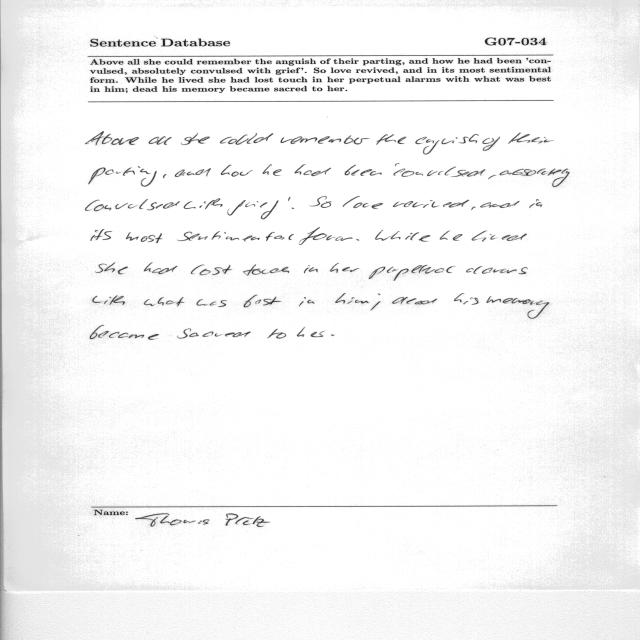 Sentence Database G07-034
Above all she could remember the anguish of their parting, and how he had been 'con-
vulsed, absolutely convulsed with grief'. So love revived, and in its most sentimental
form. While he lived she had lost touch in her perpetual alarms with what was best
in him; dead his memory became sacred to her.
Above all she could remember the anguish of their
parting, and how he had been 'convulsed, absolutely
convulsed with grief'. So love revived, and in
its most sentimental form. While he lived
she had lost touch in her perpetual alarms
with what was best in him; dead his memory
became sacred to her.
Name: Thomas